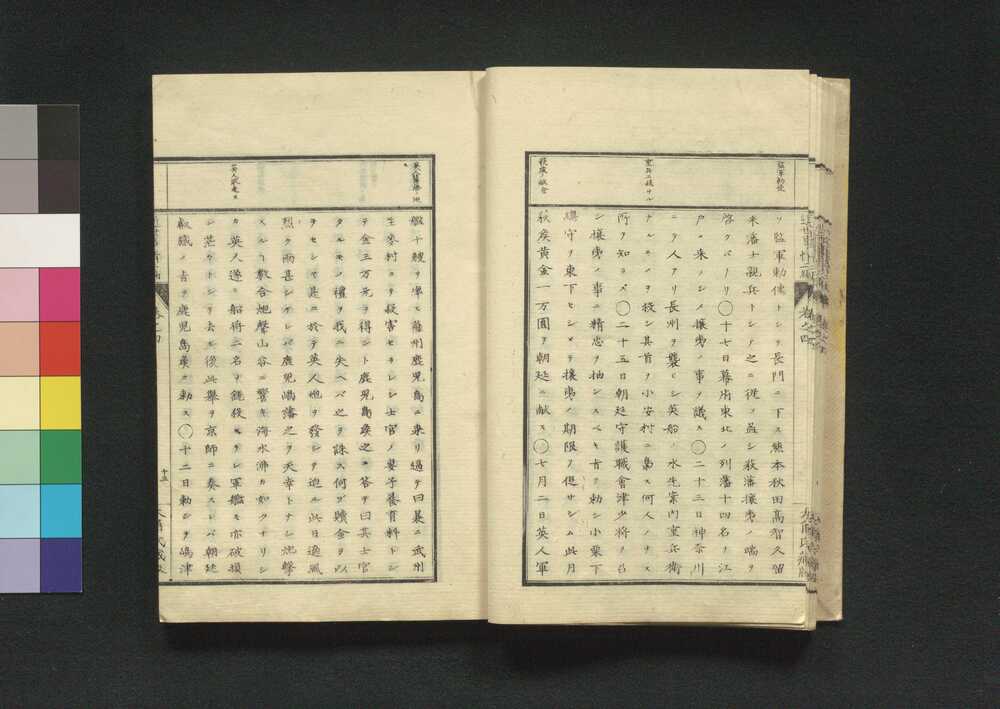 監軍勅使
重兵エ殺サル
萩侯献金
ソ監軍勅使トシテ長門ニ下ス熊本秋田高智久留
米藩士親兵トシテ之ニ従フ益シ萩藩攘夷ノ端ヲ
啓クバナリ〇十七日幕府東北ノ列藩十四名ヲ江
戸ニ来ラシメ攘夷ノ事ヲ議ス〇二十三日神奈川
ニテ人アリ長州ヲ襲ヒシ英船ノ水先案内重兵衛
ナルモノヲ殺シ其首ヲ小安村ニ梟ス何人ノナス
所ヲ知ラズ〇二十五日朝廷守護職會津少將ノ召
シ攘夷ノ事ニ精忠ヲ抽ンスベキ旨ヲ勅シ小栗下
總守ヲ東下セシメテ攘夷ノ期限ヲ促サシム此月
萩侯黄金一万圓ヲ朝廷ニ献ス〇七月二日英人軍
英人敗走ス
艦十艘ヲ率ヒ薩州鹿児島ニ来リ逼テ曰曩ニ武州
生麥村ニテ殺害セラレシ士官ノ妻子養育料トシ
テ金三万元ヲ得ント鹿児島侯之ニ答ヲ曰其士官
タルモノ禮ヲ我ニ失ヘバ之ヲ誅ス何ゾ贖金ヲ以
ヲセシヤ是ニ於テ英人炮ヲ發シテ迫ル此日適風
烈ク雨甚シケレバ鹿児嶋藩之ヲ天幸トナシ炮撃
スルヿ數合炮聲山谷ニ響キ海水沸カ如クナリシ
カ英人遂ニ船將二名ヲ銃殺セラレ軍艦モ亦破損
シ茫々トシテ去ル後此舉ヲ京師ニ奏スレバ朝廷
叡感ノ旨ヲ鹿児島侯ニ勅ス〇十二日勅シテ嶋津
十五